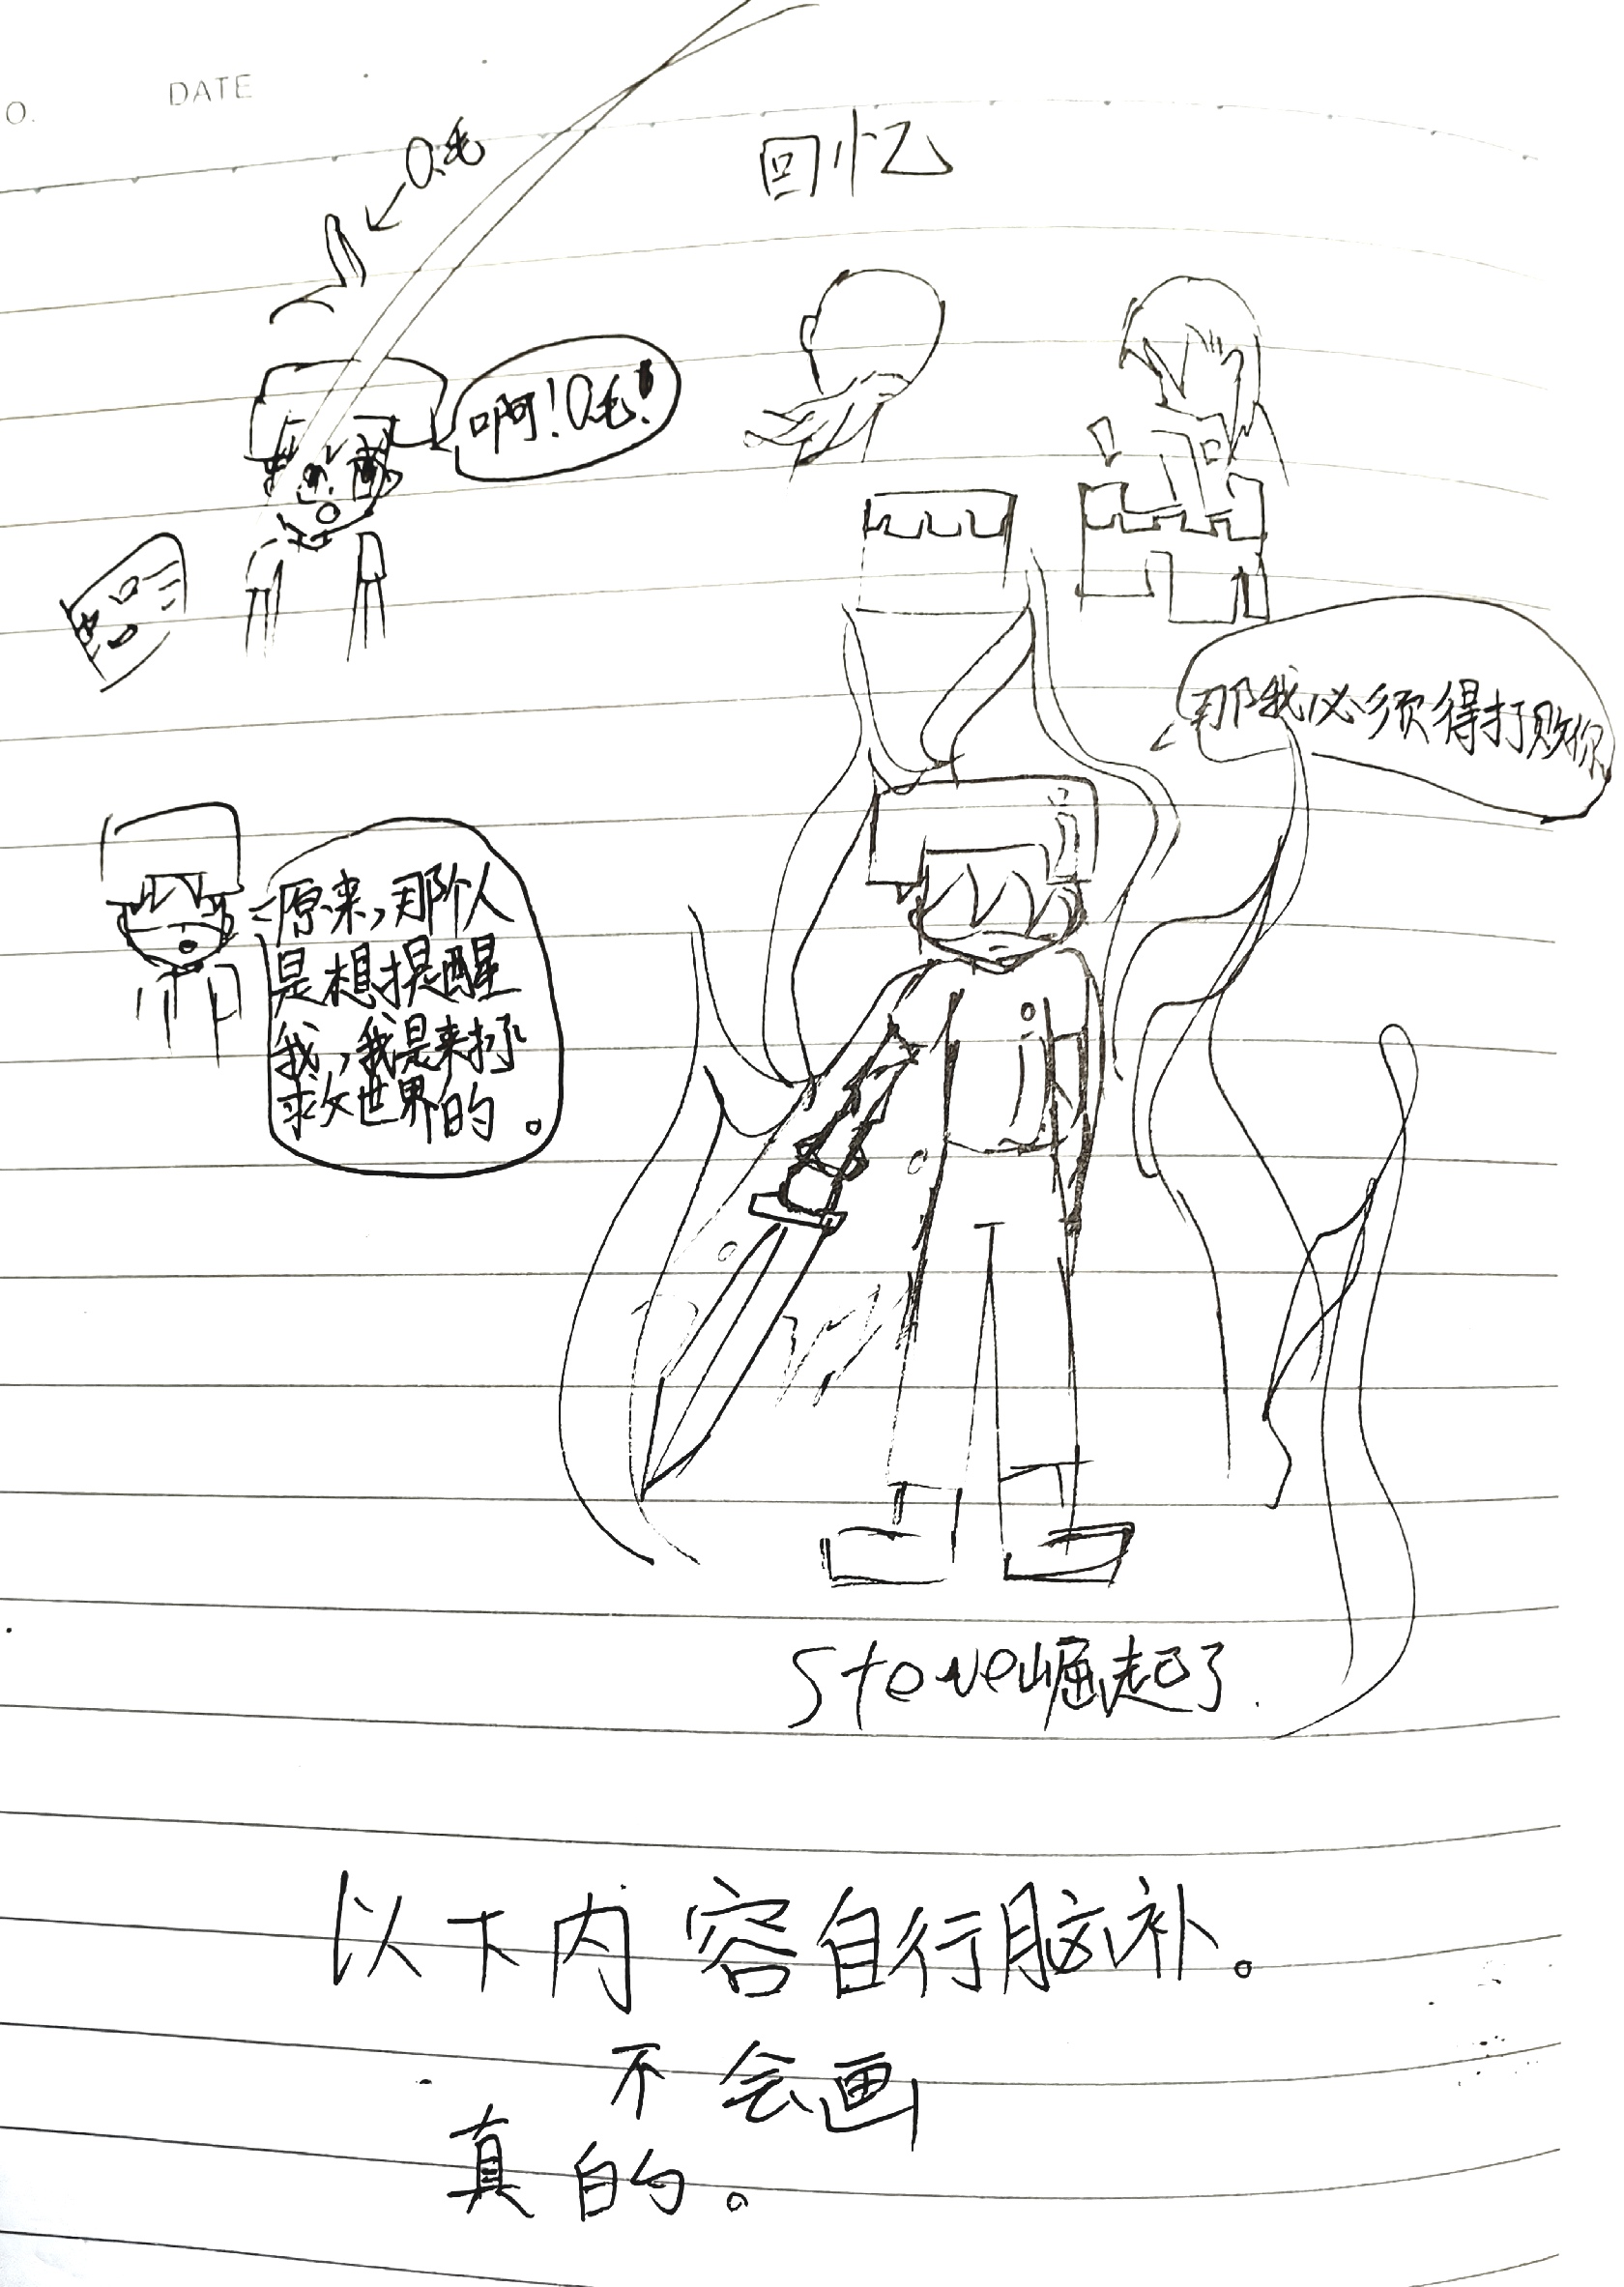 O. DATE
回忆
Q毛
啊!Q毛!
那我必须得打败你
原来,那个人
是想提醒
我,我是来拯
救世界的。
Steve崛起了.
以下内容自行脑补。
不会画
真的。